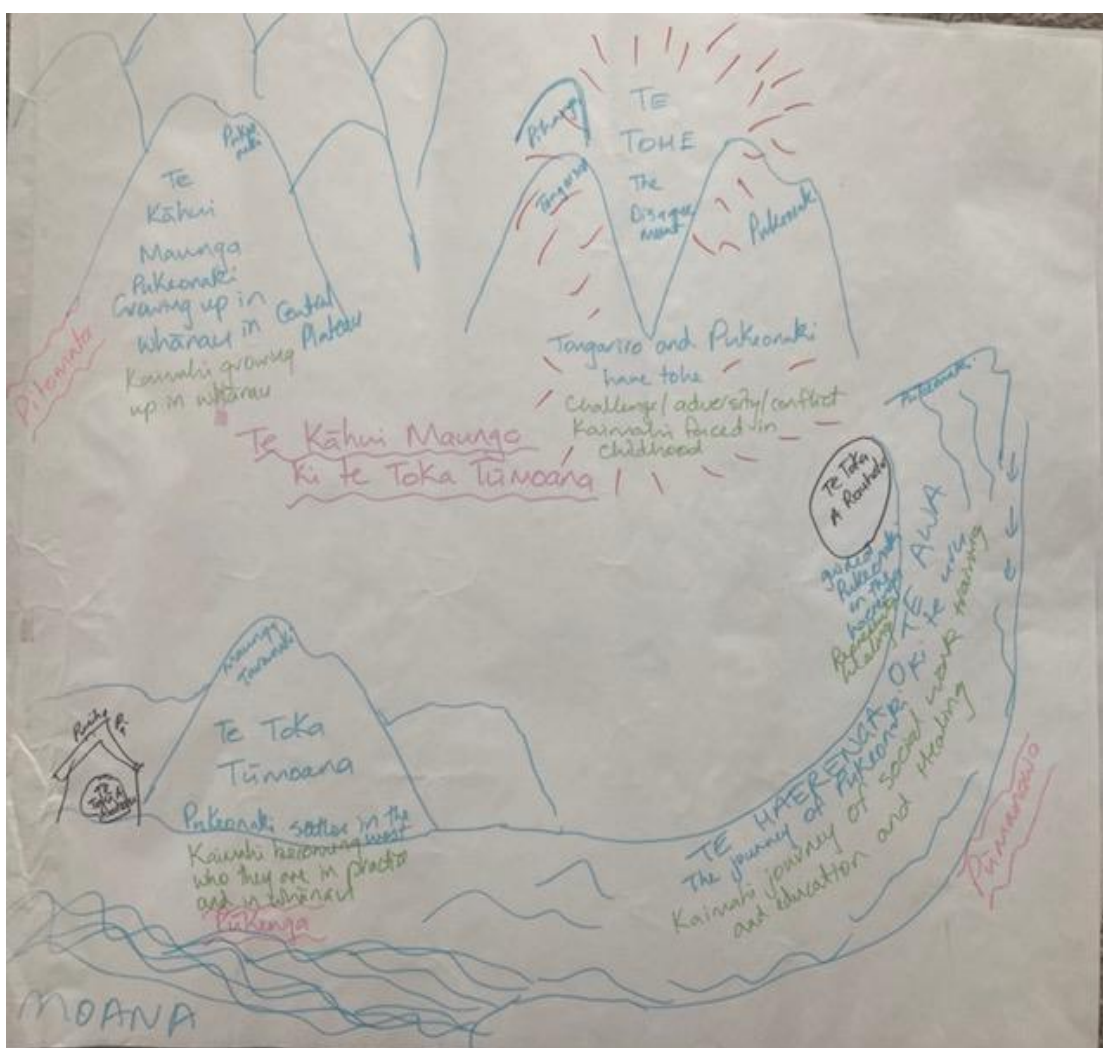 Pukeonaki
Te
Kāhui
Maunga
Pukeonaki
Growing up in
whānau in Central
Plateau
Kaimahi growing
up in whānau
Pihanga
Tongariro
TE
TOHE
The
Disagree
ment
Pukeonaki
Tongariro and Pukeonaki
have tohe
Challenge/adversity/conflict
Kaimahi faced in
childhood
Te Kāhui Maunga
ki te Toka Tūmoana
Pukeonaki
Te Toka
A Rauhoto
guided
Pukeonaki
in the
healing
TE HAERENGA O TE AWA
The journey of Pukeonaki ki te uru
Kaimahi journey of social work training
and education and Healing
Maunga
Taranaki
Te Toka
Tūmoana
Pukeonaki settles in the west
Kaimahi becoming
who they are in practice
and in whānau
Pūkenga
MOANA